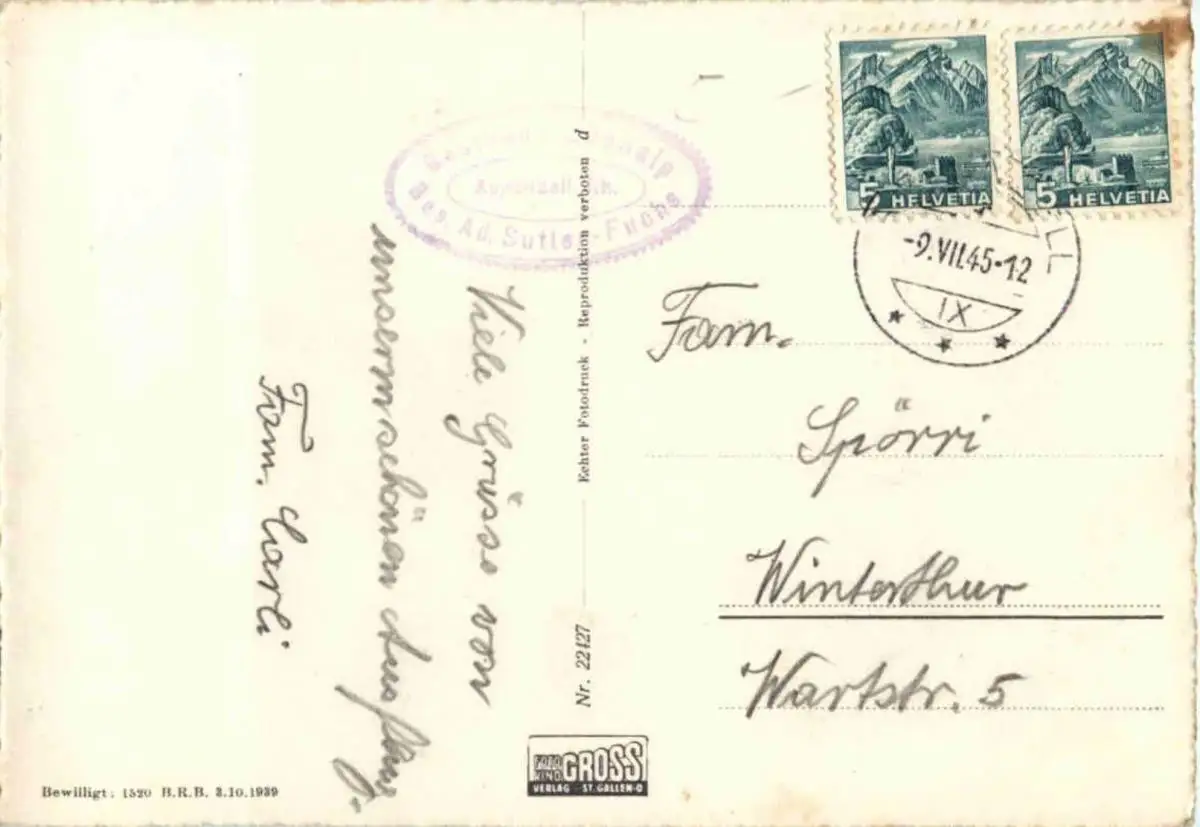 Viele Grüsse von
unserm schönen Ausflug.
Fam. Carli
Bes. Ad. Sutter-Fuchs
Echter Fotodruck - Reproduktion verboten d
Nr. 22427
5 HELVETIA
5 HELVETIA
-9.VII.45-12
IX
Fam.
Spörri
Winterthur
Wartstr. 5
FOTO
KINO
GROSS
VERLAG ST. GALLEN-O
Bewilligt: 1520 B.R.B. 3.10.1939